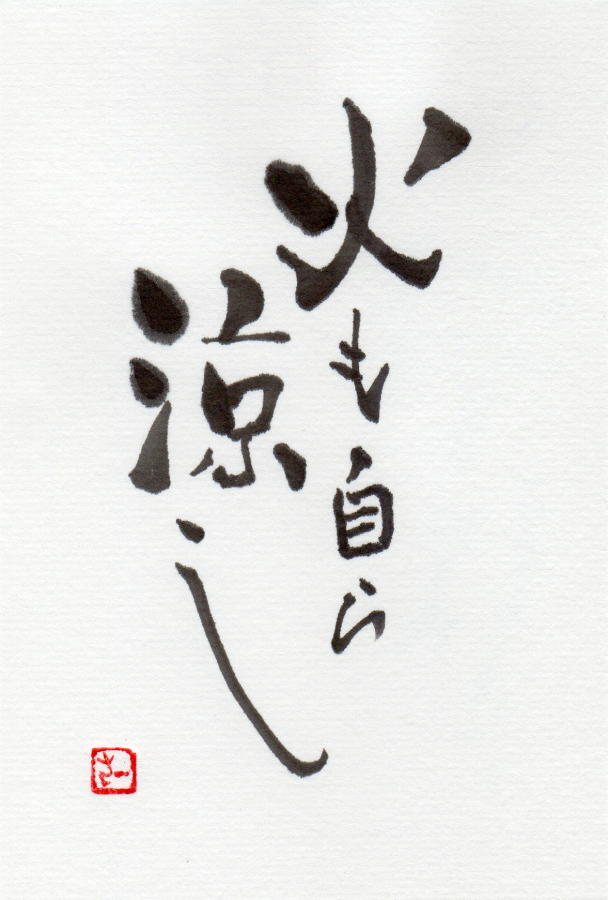 火も自ら
涼し